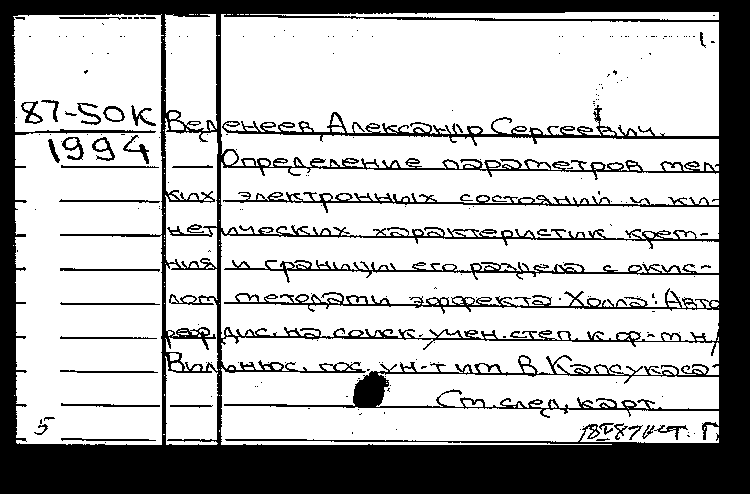 1.
87-50К Веденеев, Александр Сергеевич.
1994 Определение параметров мел-
ких электронных состояний и ки-
нетических характеристик крем-
ния и границы его раздела с окис-
лом методами эффекта Холла: Авто
реф. дис. на соиск. учен. степ. к.ф.-м.н/
Вильнюс. гос. ун-т им. В. Капсукаса-
См. след. карт.
5